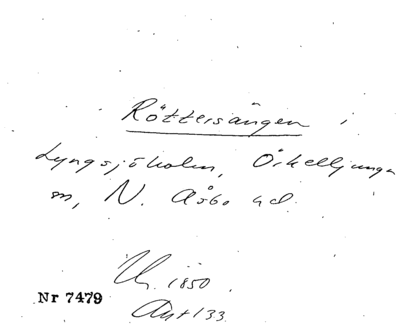 Röttersängen i
Lyngsjöholm, Örkelljunga
sn, N. Åsbo hd.
Uh. 1850.
Nr 7479
Avt 133